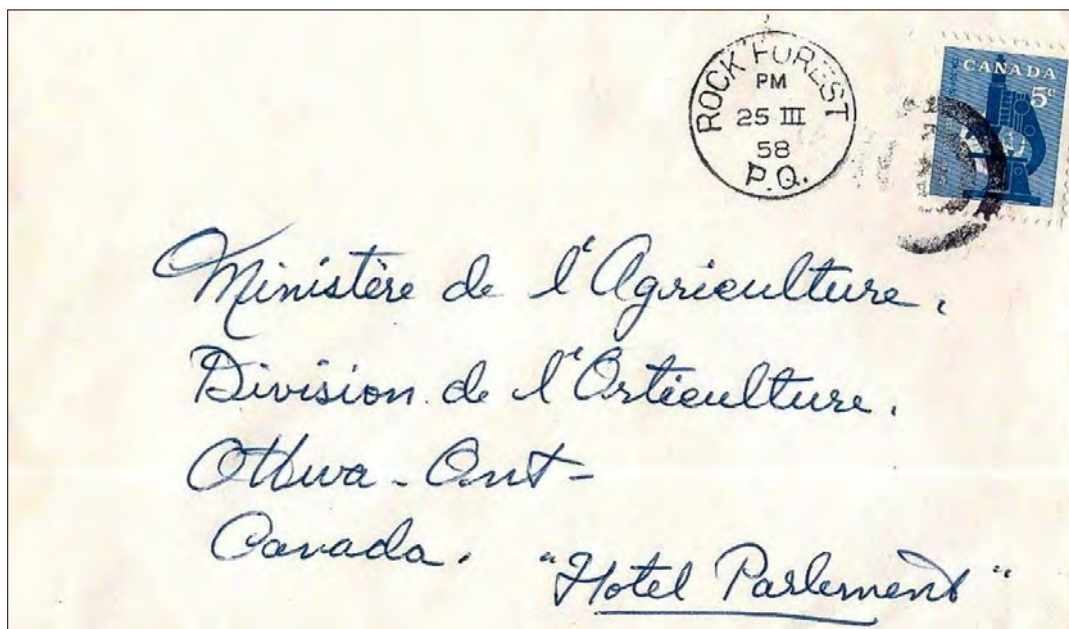 ROCK FOREST
PM
25 III
58
P.Q.
CANADA
5¢
Ministère de l'Agriculture,
Division de l'Orticulture,
Ottawa - Ont -
Canada. "Hotel Parlement"